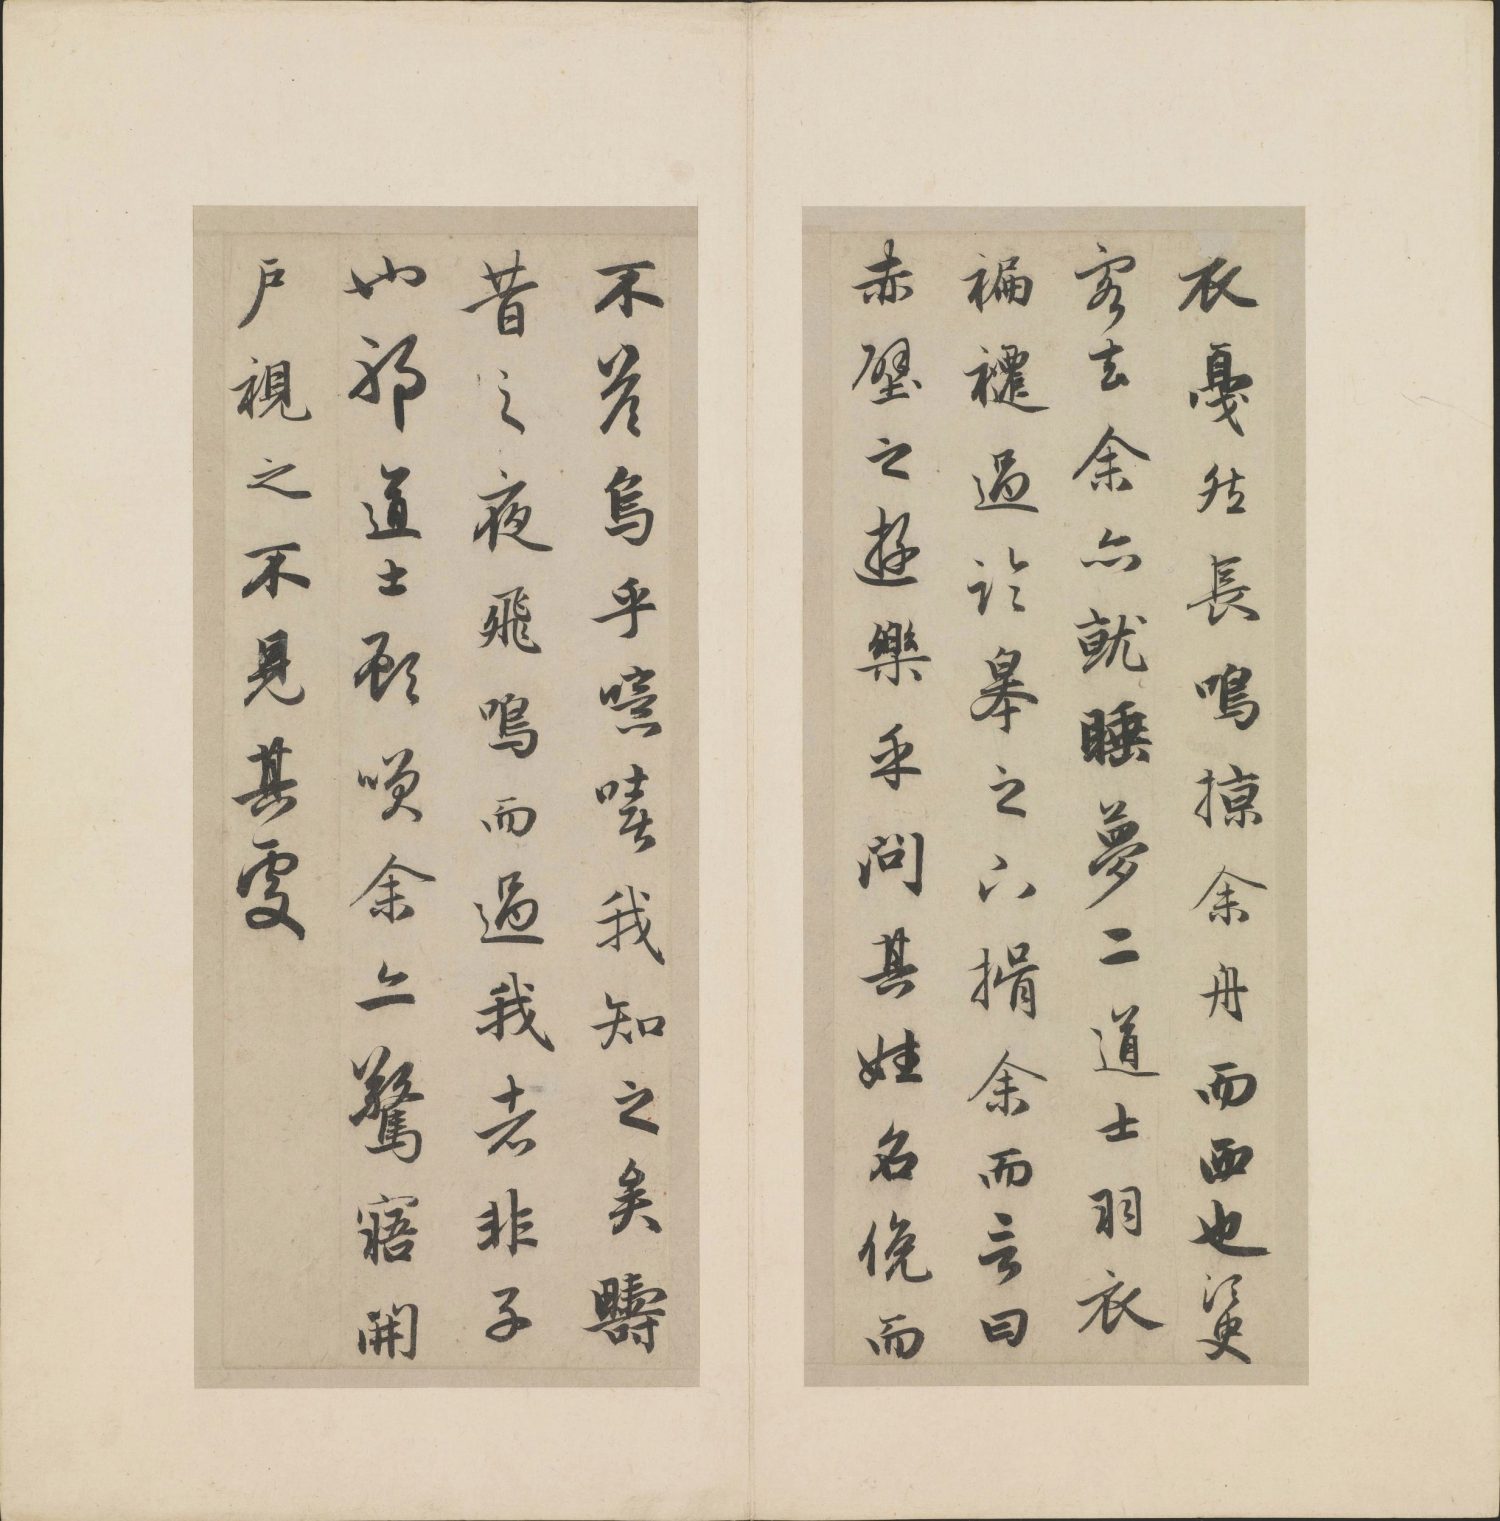 衣戞然長鳴掠余舟而西也須臾
客去余亦就睡夢二道士羽衣
褊褼過臨皋之下揖余而言曰
赤壁之遊樂乎問其姓名俛而
不答烏乎噫嘻我知之矣疇
昔之夜飛鳴而過我者非子
也邪道士顧咲余亦驚寤開
戶視之不見其處